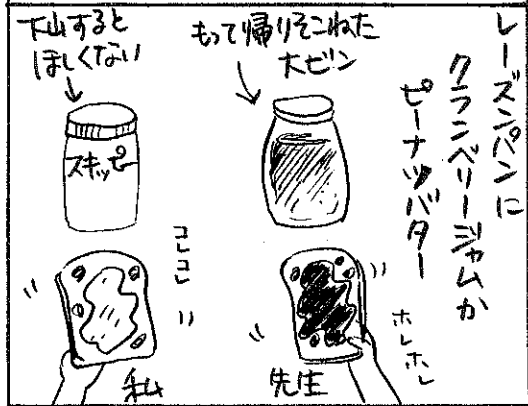 レーズンパンに
クランベリージャムか
ピーナツバター
もって帰りそこねた
大ビン
下山すると
ほしくない
スキッピー
ホレホレ
コレコレ
先生
私